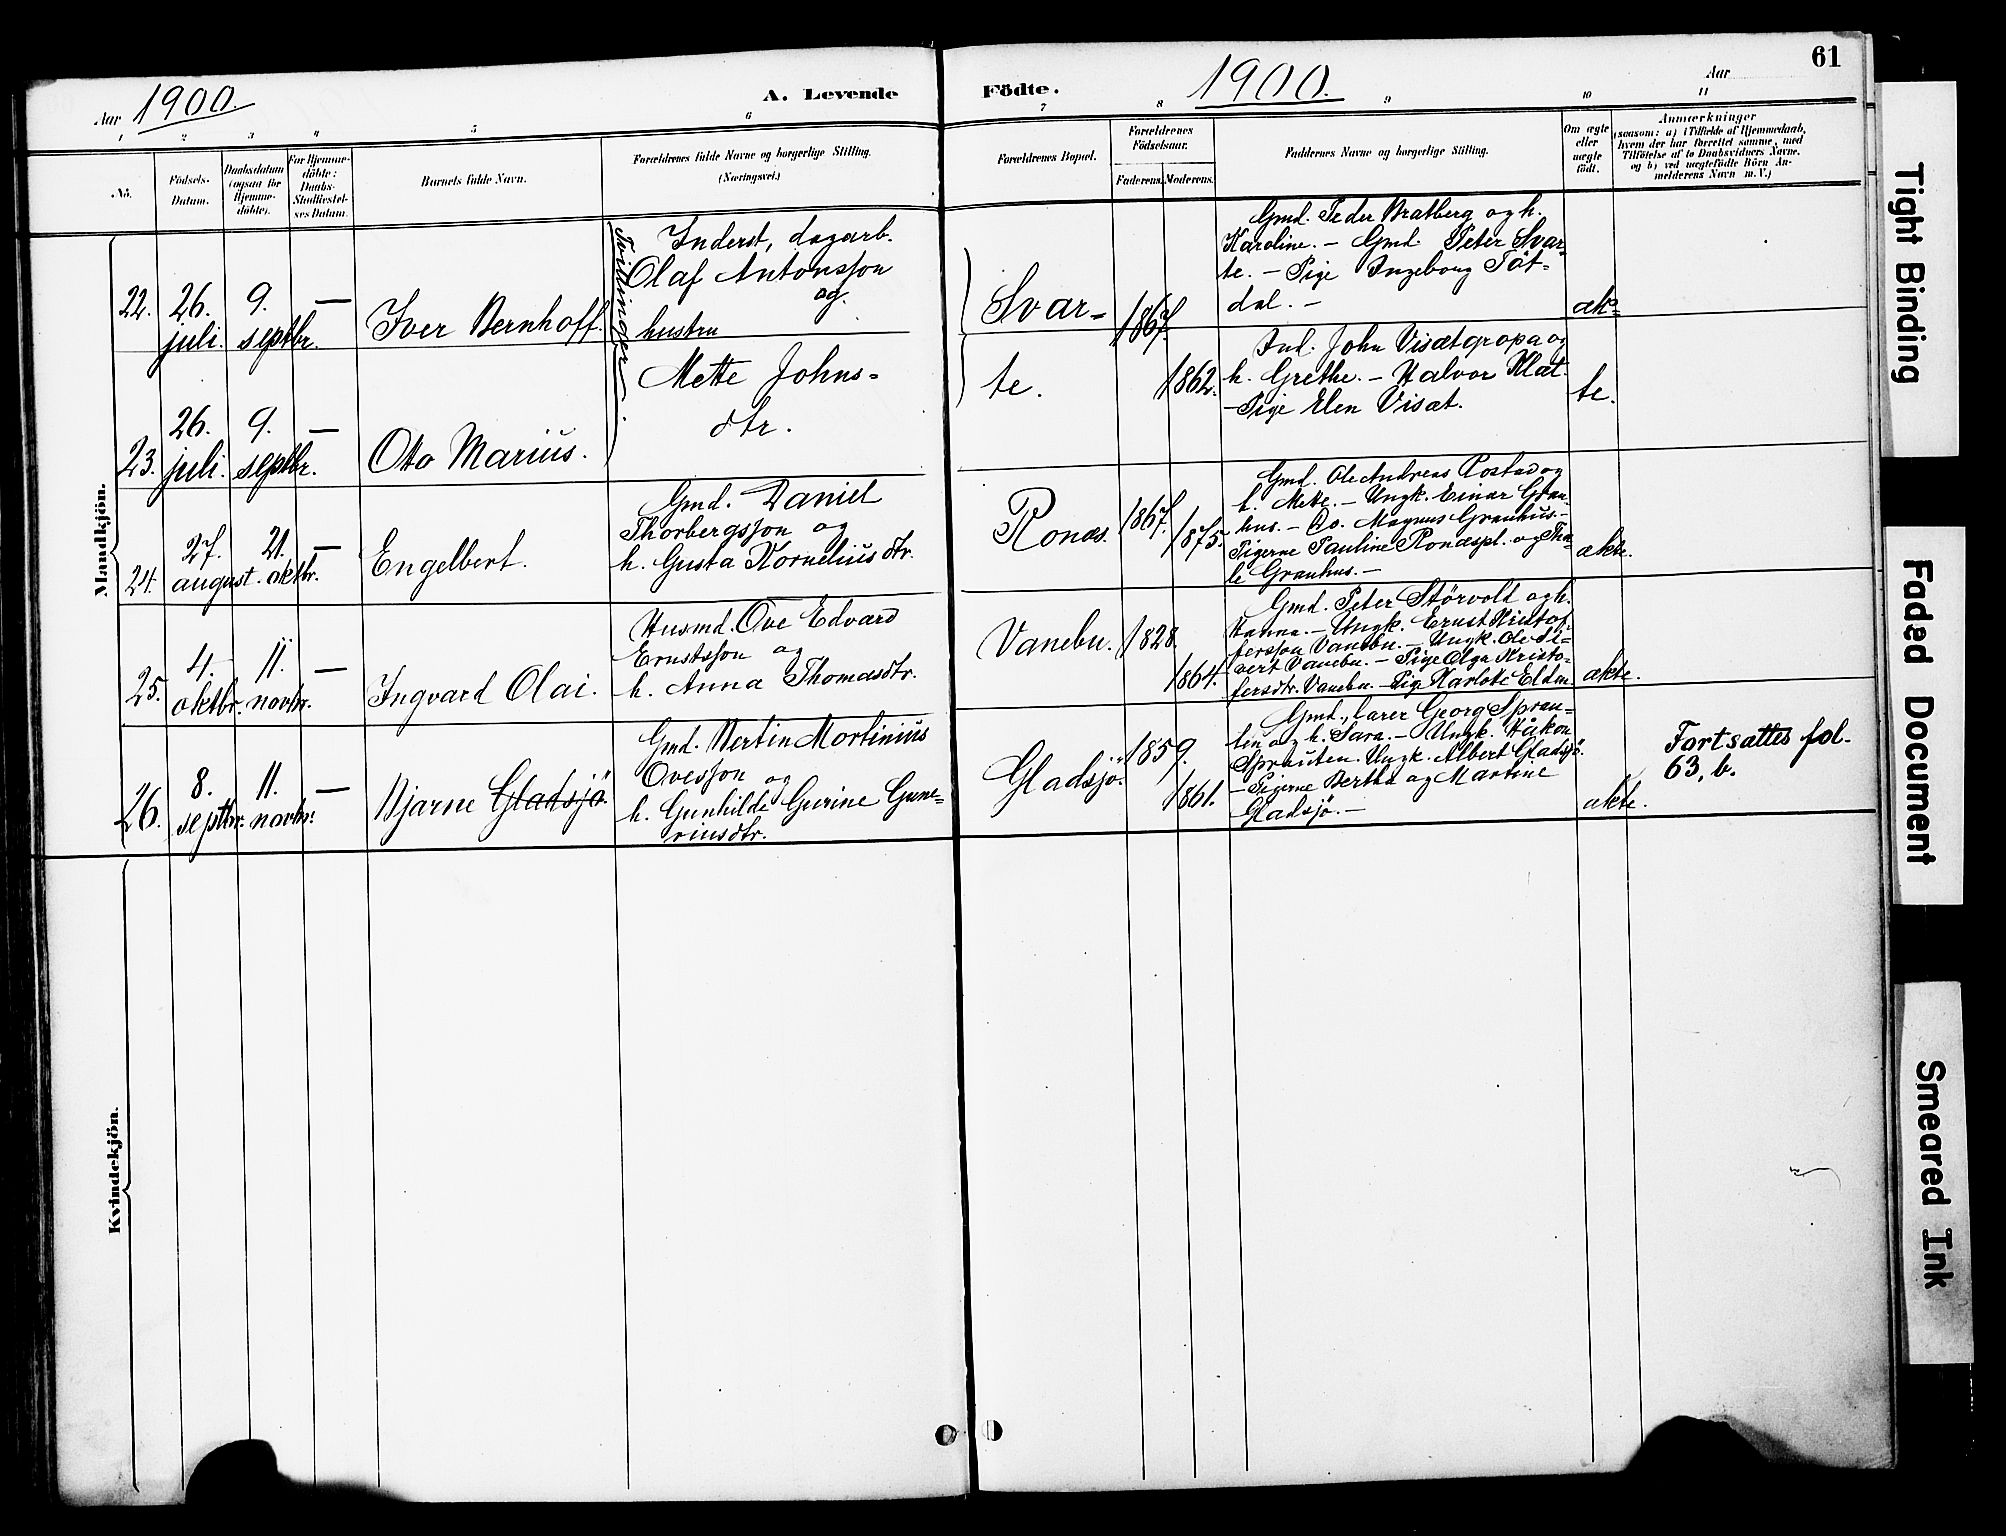 61
Aar 1900.
A. Levende
Födte.
1900.
Aar
1 2 3 4 5 6 7 8 9 10 11
No.
Födsels-
Datum.
Daabsdatum
(ogsaa for
Hjemme-
döbte).
For Hjemme-
döbte:
Daabs-
Stadfæstel-
ses Datum.
Barnets fulde Navn.
Forældrenes fulde Navne og borgerlige Stilling.
(Næringsvei.)
Forældrenes Bopæl.
Forældrenes
Födselsaar.
Faderens.
Moderens.
Faddernes Navne og borgerlige Stilling.
Om ægte
eller
uægte
födt.
Anmærkninger
(saasom: a) i Tilfælde af Hjemmedaab,
hvem der har forrettet samme, med
Tilföielse af to Daabsvidners Navne,
og b) ved uægtefödte Börn An-
melderens Navn m. V.)
Mandkjön.
22.
26.
juli.
9.
septbr.
—
Iver Bernhoff.
Tvillinger
Inderst, dagarb.
Olaf Antonsson
og
hustru
Mette Johns-
dtr.
Svar-
te.
1867.
1862.
Gmd. Peder Bratberg og h.
Karoline. — Gmd. Peter Svar-
te. — Pige Ingeborg Töt-
dal. —
æk-
te.
23.
26.
juli.
9.
septbr.
—
Oto Marius.
Ind. John Visætgropa og
h. Grethe. — Halvor Klæt.
— Pige Elen Visæt.
24.
27.
august.
21.
oktbr.
—
Engelbert.
Gmd. Daniel
Thorbergsson og
h. Gusta Korneliusdtr.
Ronæs.
1867.
1875.
Gmd. Ole Andreas Rostad og
h. Mette. — Ungk. Einar Gran-
hus. — Do. Magnus Granhus. —
Pigerne Pauline Ronæspl. og
le Granhus. —
ækte.
25.
4.
oktbr.
11.
novbr.
—
Ingvard Olai.
Husmd. Ove Edvard
Ernstsson og
h. Anna Thomasdtr.
Vanebu.
1828.
1864.
Gmd. Peter Störvold og h.
Hanna. — Ungk. Ernst Kristof-
fersson Vanebu. — Ungk. Ole
Vanebu. — Pige Olga Kristo-
fersdtr. Vanebu. — Pige Karloti Elden.
ækte.
26.
8.
septbr.
11.
novbr.
—
Bjarne Gladsjö.
Gmd. Bertin Mortinius
Ovesson og
h. Gunhilde Gurine Gune-
riusdtr.
Gladsjö.
1859.
1861.
Gmd., lærer Georg Sprau-
ten og h. Sara. — Ungk. Håkon
Sprauten. Ungk. Albert Gladsjö.
— Pigerne Bertha og Martine
Gladsjö. —
ækte.
Fortsættes fol.
63, b.
Kvindekjön.
Tight Binding
Faded Document
Smeared Ink